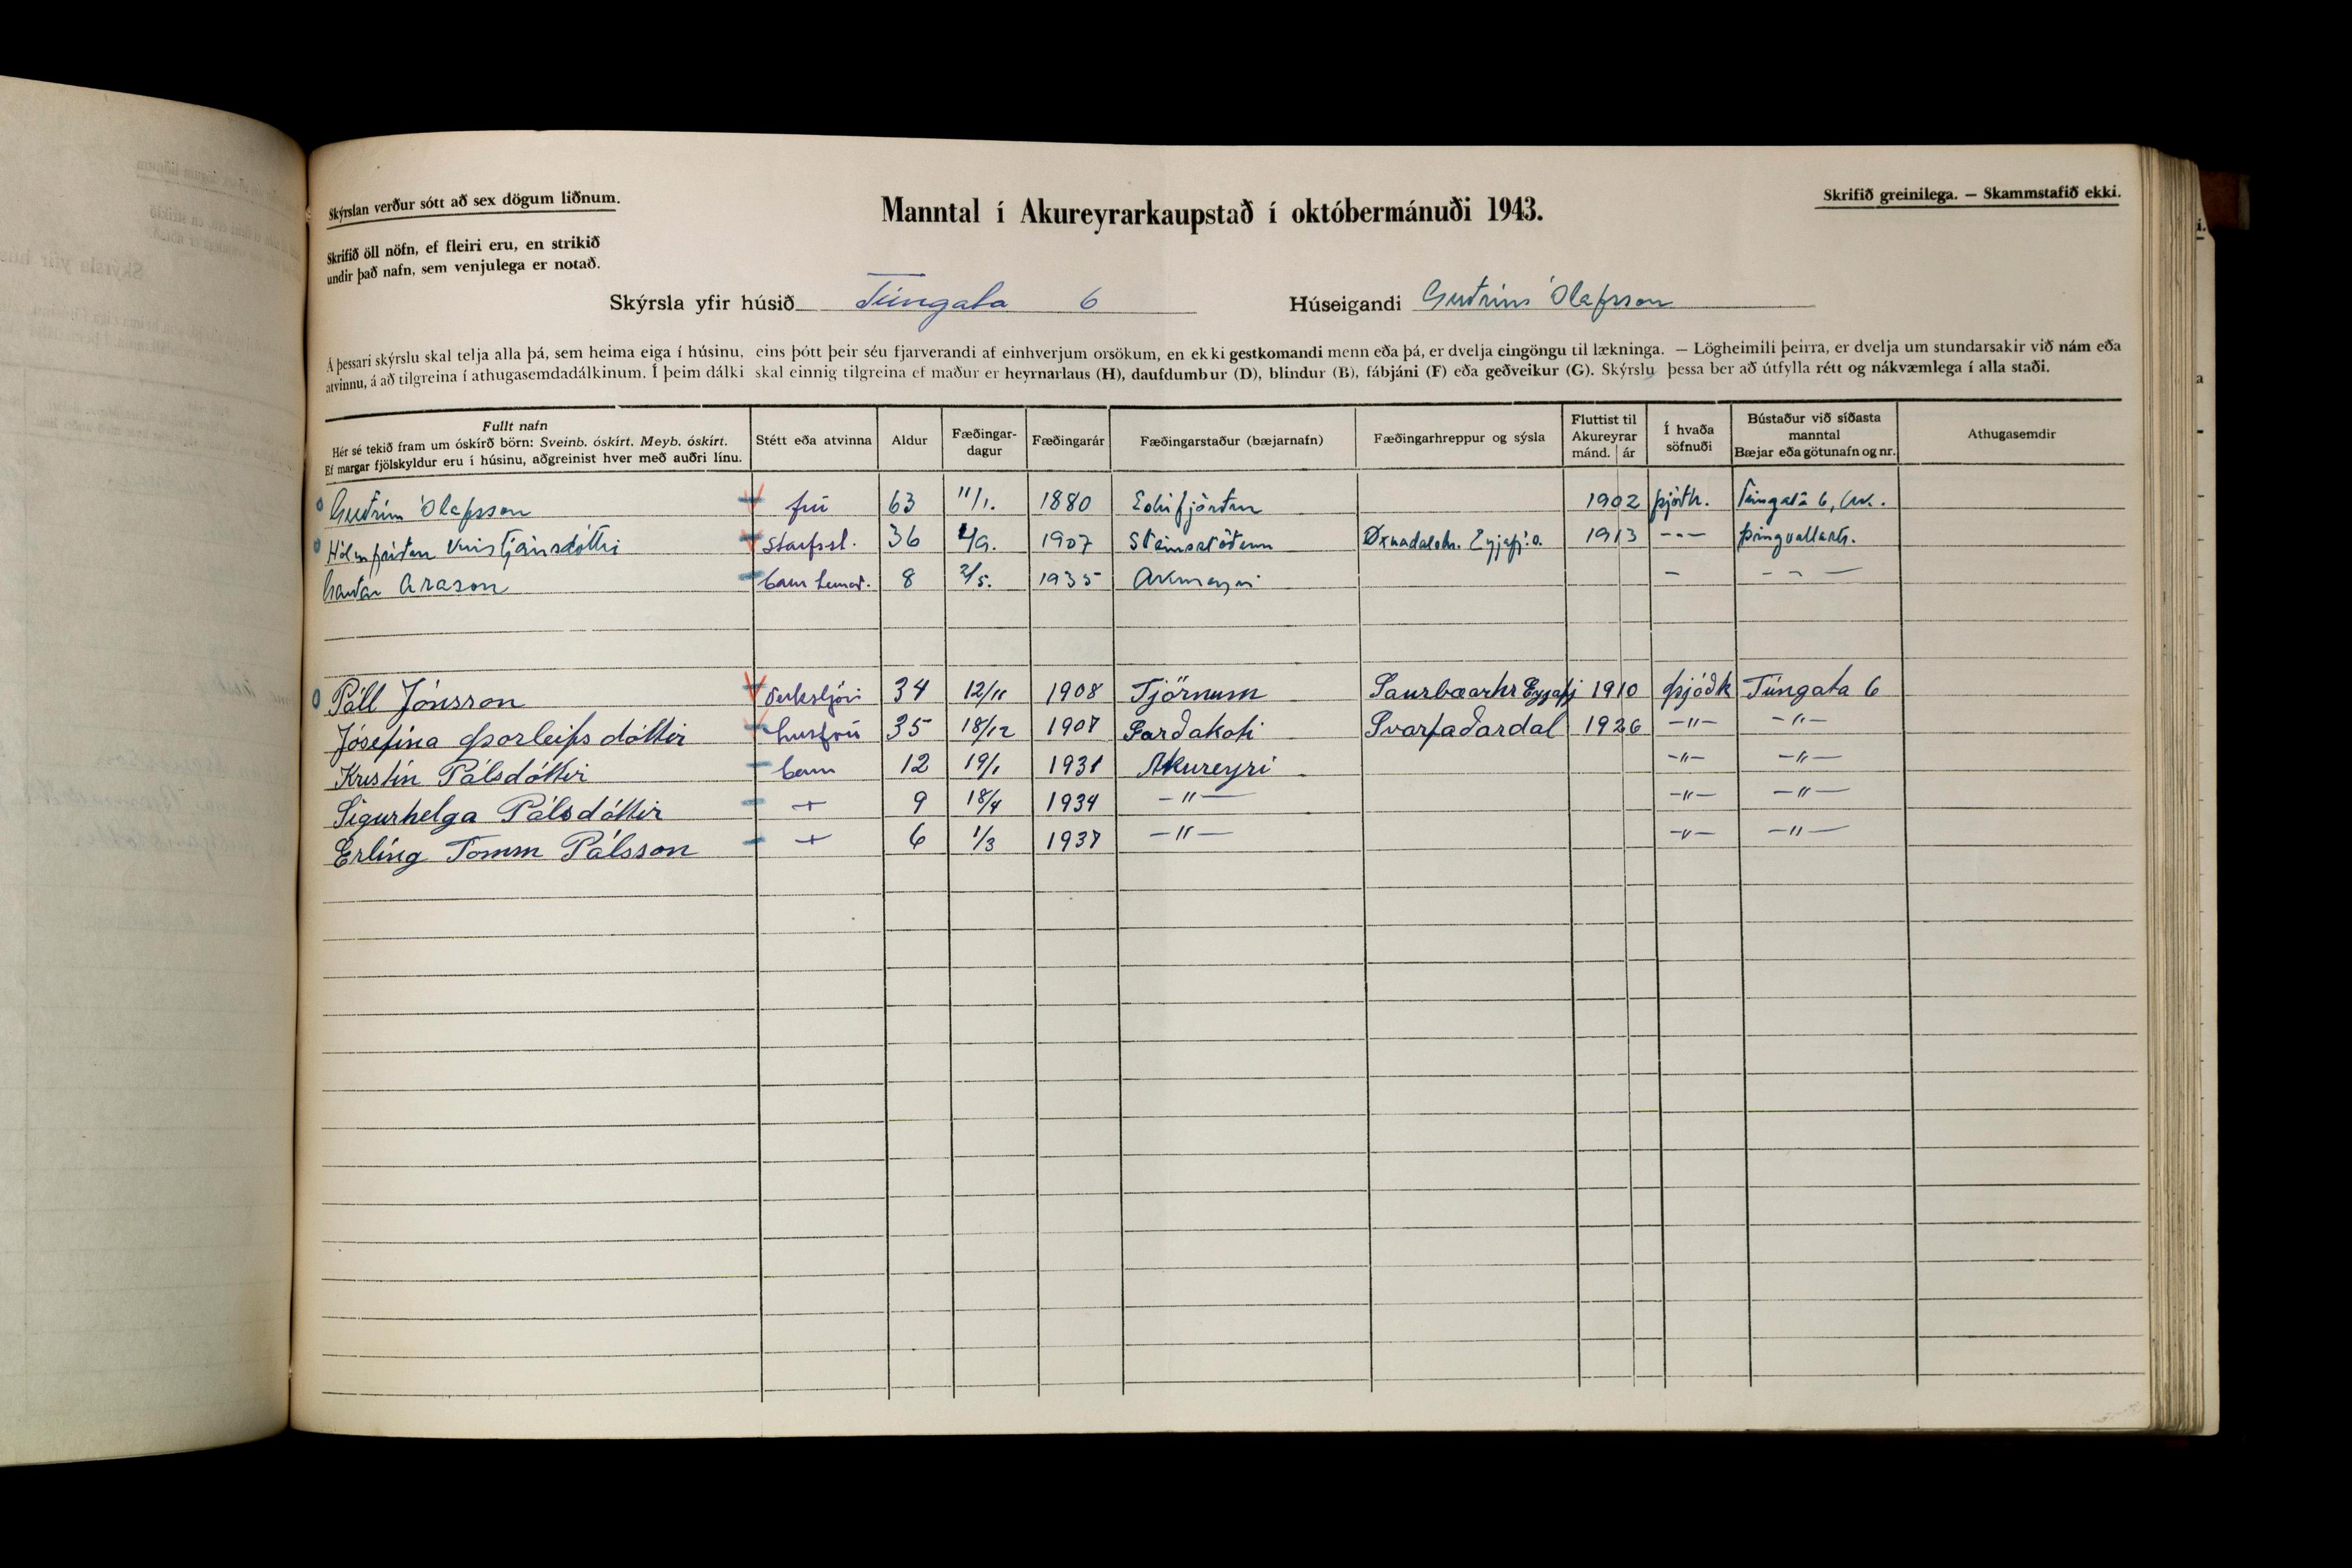 Skýrslan verður sótt að sex dögum liðnum.
Manntal í Akureyrarkaupstað í októbermánuði 1943.
Skrifið greinilega. — Skammstafið ekki.
Skrifið öll nöfn, ef fleiri eru, en strikið
undir það nafn, sem venjulega er notað.
Skýrsla yfir húsið Túngata 6 Húseigandi Guðrún Ólafsson
Á þessari skýrslu skal telja alla þá, sem heima eiga í húsinu, eins þótt þeir séu fjarverandi af einhverjum orsökum, en ekki gestkomandi menn eða þá, er dvelja eingöngu til lækninga. — Lögheimili þeirra, er dvelja um stundarsakir við nám eða
atvinnu, á að tilgreina í athugasemdadálkinum. Í þeim dálki skal einnig tilgreina ef maður er heyrnarlaus (H), daufdumbur (D), blindur (B), fábjáni (F) eða geðveikur (G). Skýrslu þessa ber að útfylla rétt og nákvæmlega í alla staði.
Fullt nafn
Hér sé tekið fram um óskírð börn: Sveinb. óskírt. Meyb. óskírt.
Ef margar fjölskyldur eru í húsinu, aðgreinist hver með auðri línu.
Stétt eða atvinna
Aldur
Fæðingar-
dagur
Fæðingarár
Fæðingarstaður (bæjarnafn)
Fæðingarhreppur og sýsla
Fluttist til
Akureyrar
mánd. ár
Í hvaða
söfnuði
Bústaður við síðasta
manntal
Bæjar eða götunafn og nr.
Athugasemdir
Guðrún Ólafsson frú 63 11/1. 1880 Eskifjörður 1902 þjóðk. Túngata 6, Ak.
Hólmfríður Kristjánsdóttir starfsst. 36 /9. 1907 Steinsstöðum Öxnadalshr. Eyjafj.s. 1913 - - - Þingvallastr.
Garðar Arason barn hennar. 8 2/5. 1935 Akureyri - - - -
Páll Jónsson Verkstjóri 34 12/11 1908 Tjörnum Saurbæarhr Eyjafj 1910 þjóðk Túngata 6
Jósefína Þorleifsdóttir húsfrú 35 18/12 1907 Garðakoti Svarfaðardal 1926 -"- -"-
Kristín Pálsdóttir barn 12 19/1 1931 Akureyri -"- -"-
Sigurhelga Pálsdóttir -"- 9 18/4 1934 -"- -"- -"-
Erlíng Tomm Pálsson -"- 6 1/3 1937 -"- -"- -"-